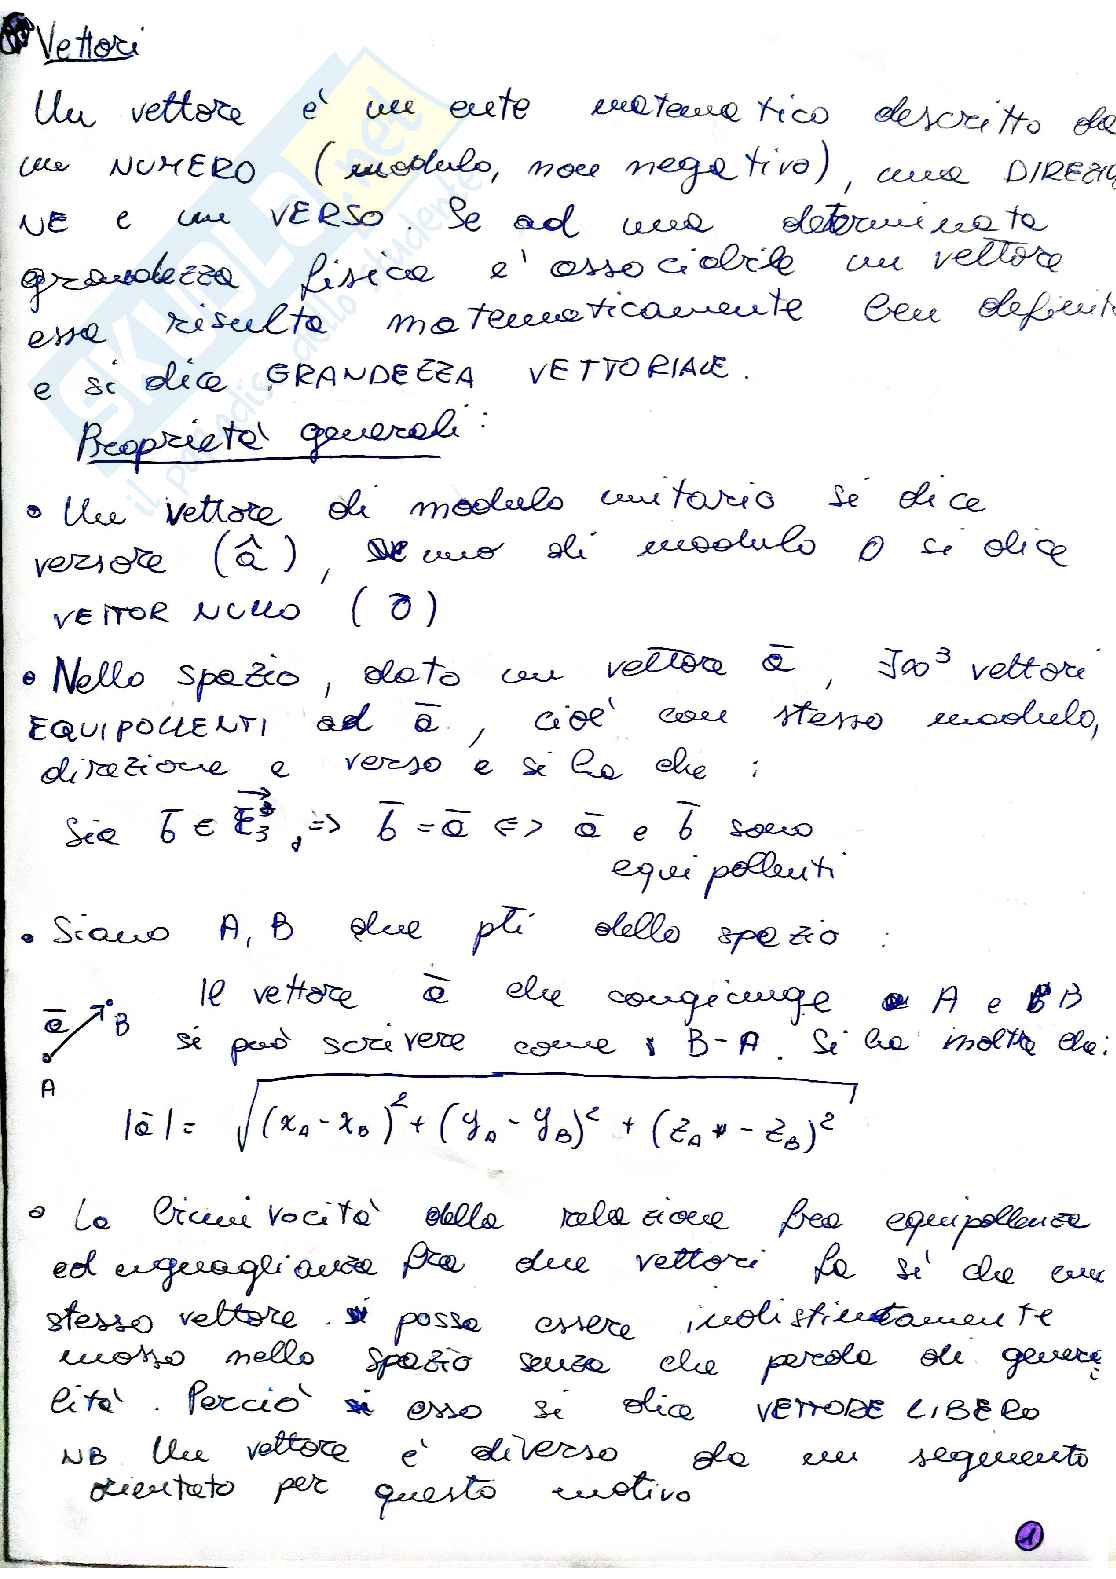 Vettori
Un vettore e' un ente matematico descritto da
un NUMERO (modulo, non negativo), una DIREZIO
NE e un VERSO. Se ad una determinata
grandezza fisica e' associabile un vettore
essa risulta matematicamente ben definit
e si dice GRANDEZZA VETTORIALE.
Proprietà generali:
• Un vettore di modulo unitario si dice
versore (â), uno di modulo 0 si dice
VETTOR NULLO (0̄)
• Nello spazio, dato un vettore ā, ∃∞³ vettori
EQUIPOLLENTI ad ā, cioe' con stesso modulo,
direzione e verso e si ha che:
Sia b̄ ∈ E₃, => b̄ = ā <=> ā e b̄ sono
equipollenti
• Siano A, B due pti dello spazio:
Il vettore ā che congiunge A e B
si può scrivere come B-A. Si ha inoltre che:
ā
B
A
|ā| = √(x_A - x_B)² + (y_A - y_B)² + (z_A - z_B)²
• La biunivocità della relazione fra equipollenza
ed uguaglianza fra due vettori fa si' che un
stesso vettore possa essere indistintamente
mosso nello spazio senza che perda di genera
lità. Perciò esso si dice VETTORE LIBERO
NB Un vettore è diverso da un segmento
orientato per questo motivo
1
SKUOLA.net
il paradiso dello studente